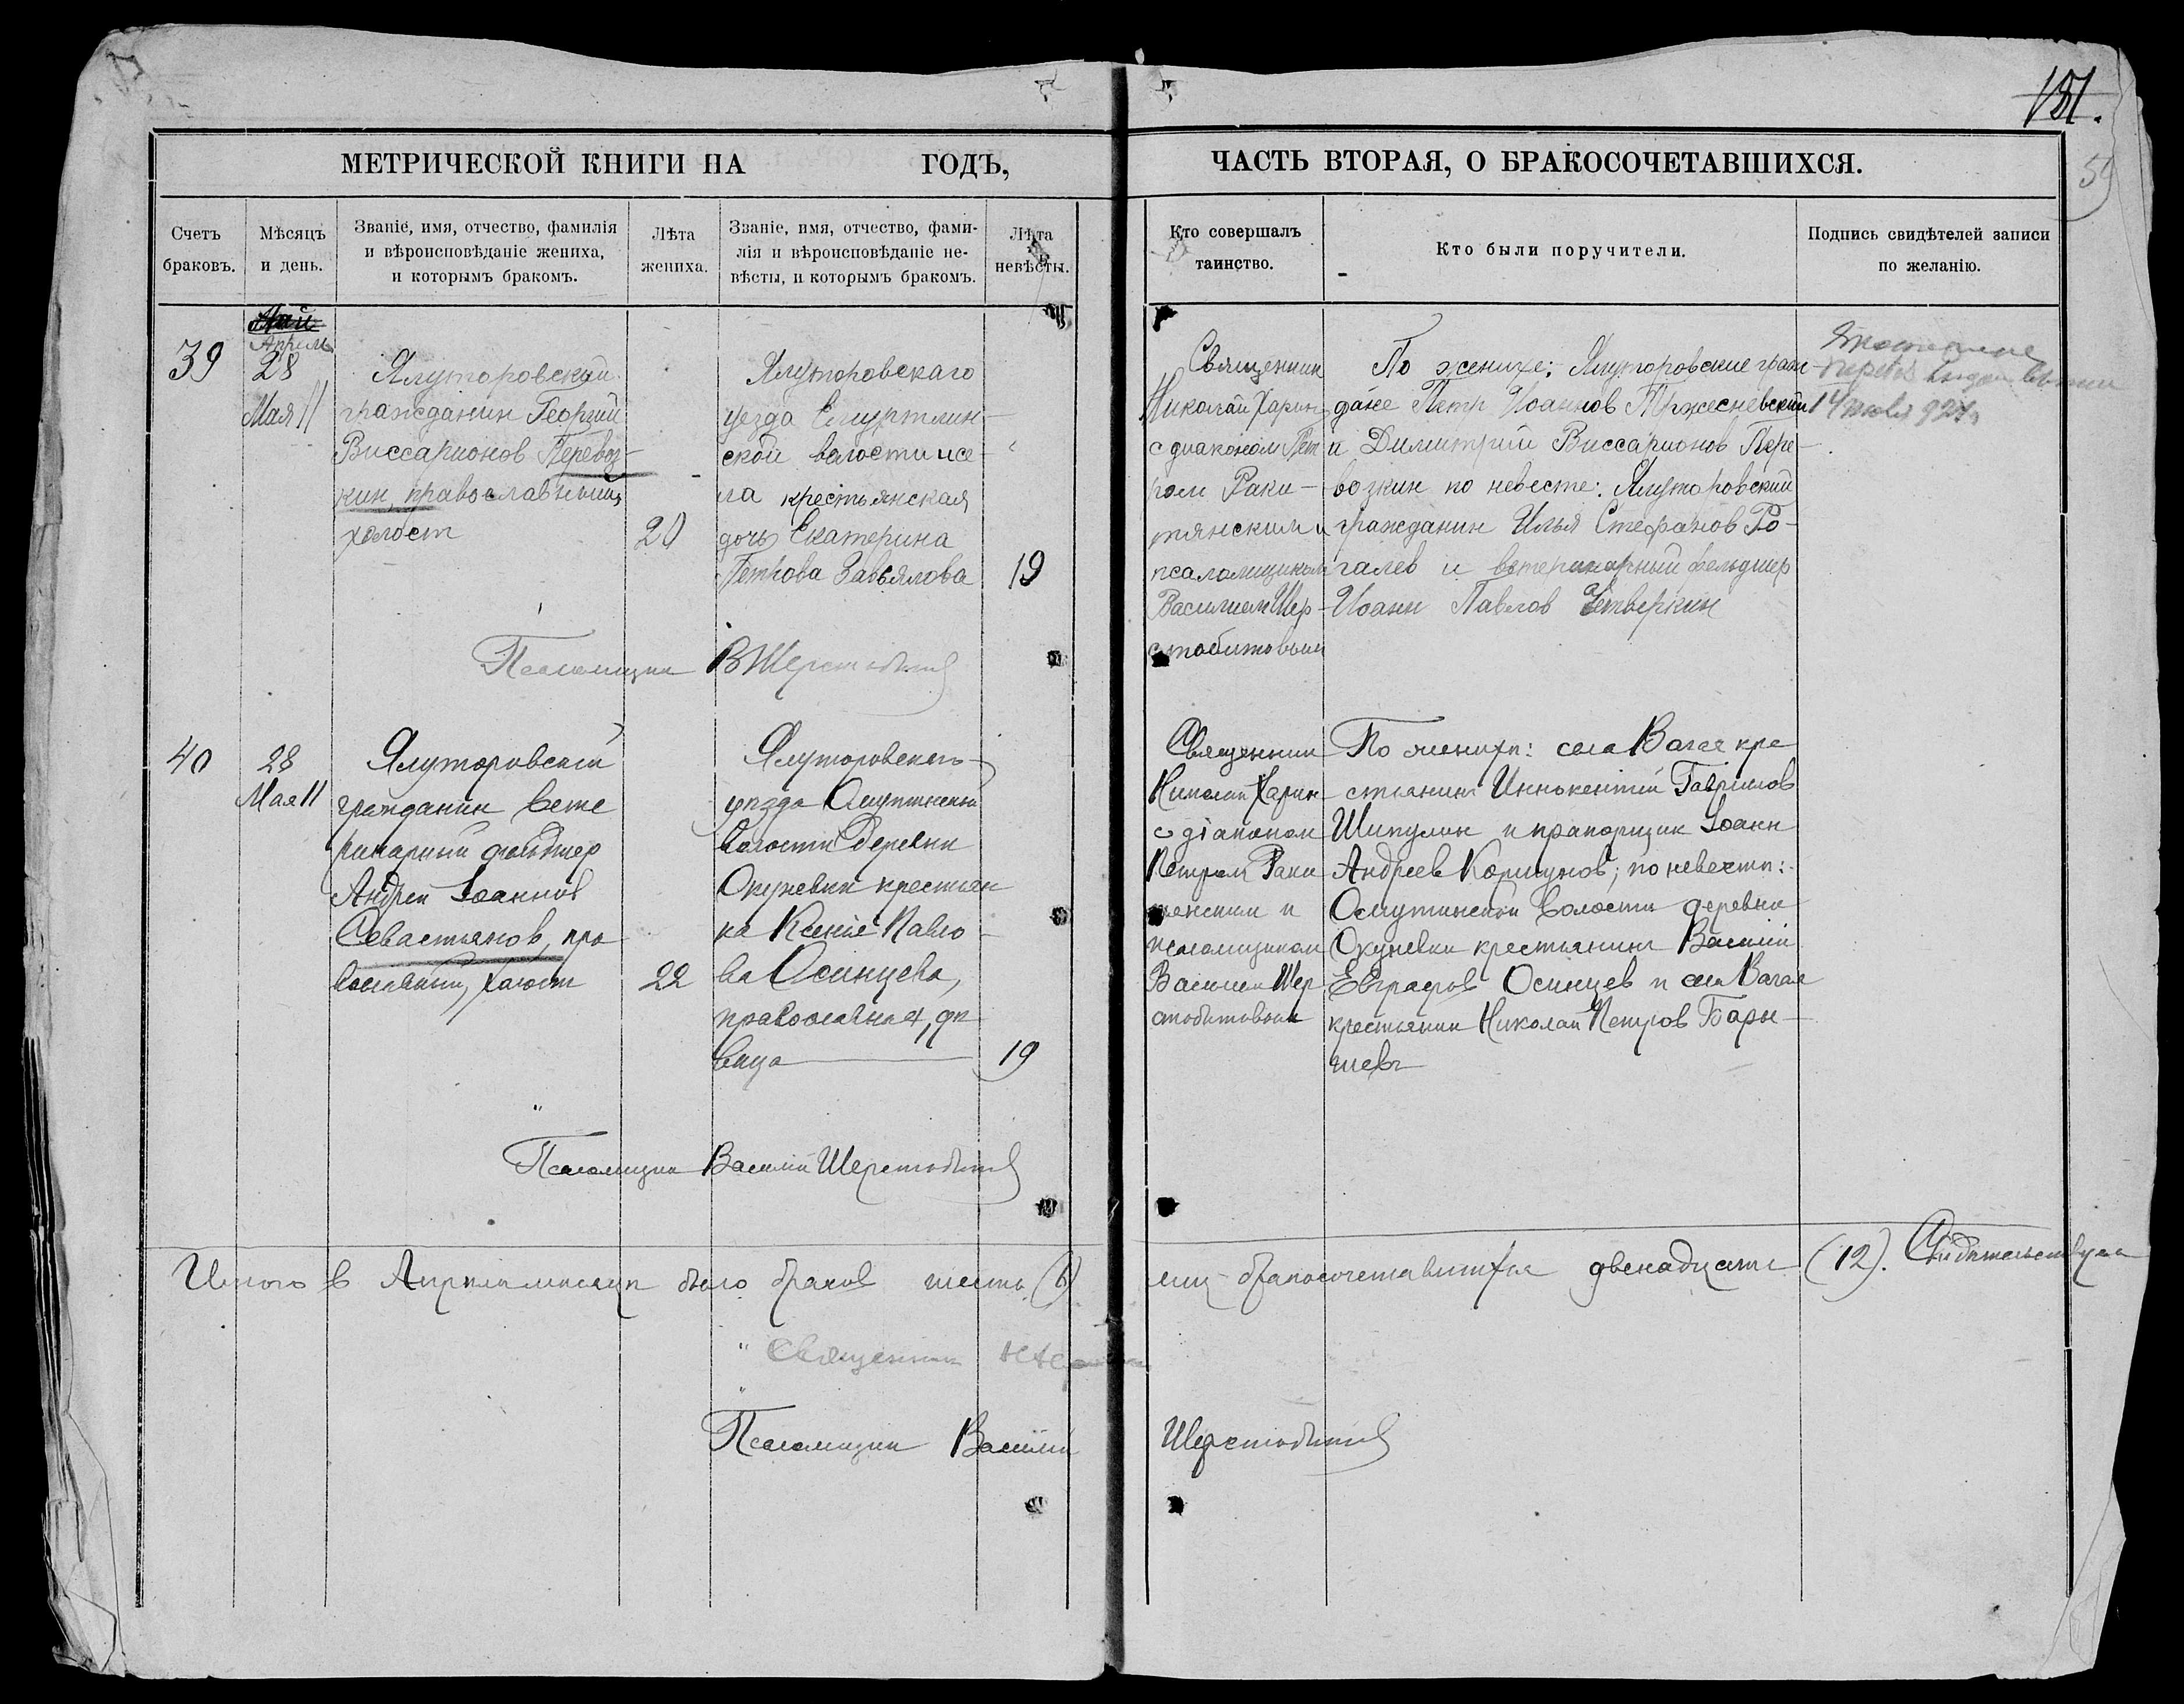 181.
59
МЕТРИЧЕСКОЙ КНИГИ НА ГОДЪ,
ЧАСТЬ ВТОРАЯ, О БРАКОСОЧЕТАВШИХСЯ.
Счетъ
браковъ.
Мѣсяцъ
и день.
Званіе, имя, отчество, фамилія
и вѣроисповѣданіе жениха,
и которымъ бракомъ.
Лѣта
жениха.
Званіе, имя, отчество, фами-
лія и вѣроисповѣданіе не-
вѣсты, и которымъ бракомъ.
Лѣта
невѣсты.
Кто совершалъ
таинство.
Кто были поручители.
Подпись свидѣтелей записи
по желанію.
39
Май
Апрель
28
Мая 11
Ялуторовский
гражданин Георгий
Виссарионов Перевоз-
кин, православный,
холост
20
Ялуторовскаго
уезда
ской волости и се-
ла крестьянская
дочь Екатерина
Петрова Завьялова
19
Священник
Николай Харин
с диаконом Пет
ром Раки-
тянским и
псаломщиком
Василием Шер-
стобитовым
По женихе: Ялуторовские граж-
дане Петр Иоаннов Тржесневский
и Димитрий Виссарионов Пере-
возкин по невесте: Ялуторовский
гражданин Илья Стефанов Ро-
галев и ветеринарный фельдшер
Иоанн Павлов Четверкин
14 июля 924 г.
Псаломщик ВШерстобитов
40
28
Мая 11
Ялуторовскій
гражданин вете
ринарный фельдшер
Андрей Іоаннов
Севастьянов, пра
вославный, холост
22
Ялуторовскаго
уѣзда Омутинской
волости Деревни
Окуневки крестьян
ка Ксенія Павло-
ва Осинцева,
православная, дѣ
вица
19
Священник
Николай Харин
с діаконом
Петром Раки
тянским и
псаломщиком
Василием Шер
стобитовым
По женихѣ: села Вагая кре
стьянинъ Иннокентій Гаврилов
Шипулин и прапорщик Іоанн
Андреев Коршунов; по невестѣ:
Омутинской волости деревни
Окуневки крестьянинъ Василій
Евграфов Осинцев и села Вагая
крестьянин Николай Петров Бары-
шевъ
Псаломщик Василій Шерстобитов
Итого в Апрѣле мѣсяцѣ было браков шесть (6)
лиц бракосочетавшихся двенадцать (12). Свидѣтельствуем
Священник
Псаломщик Василій
Шерстобитов